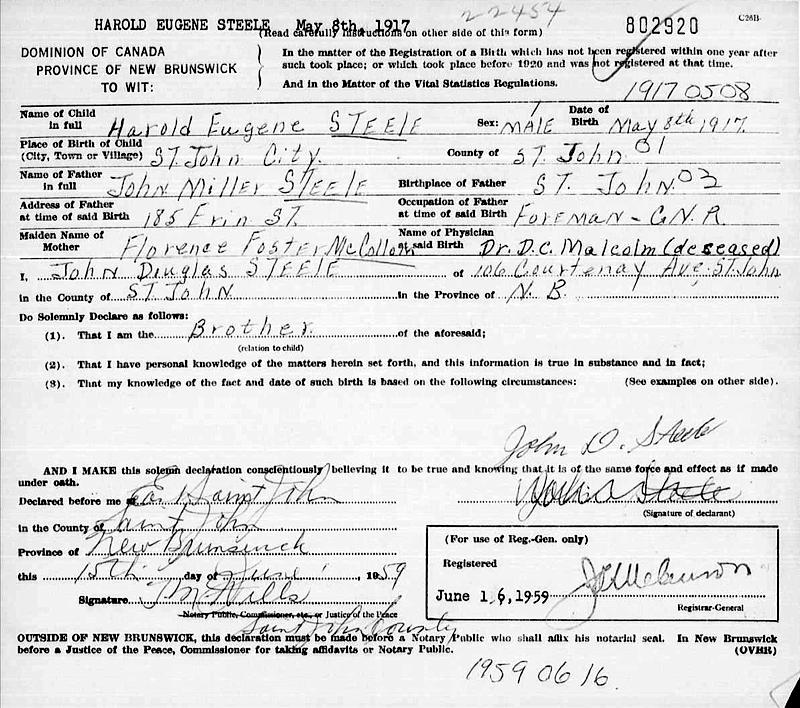 22454
HAROLD EUGENE STEELE May 8th, 1917
(Read carefully instructions on other side of this form)
802920
C26B
DOMINION OF CANADA
PROVINCE OF NEW BRUNSWICK
TO WIT:
In the matter of the Registration of a Birth which has not been registered within one year after
such took place; or which took place before 1920 and was not registered at that time.
And in the Matter of the Vital Statistics Regulations.
19170508
Name of Child in full Harold Eugene STEELE Sex: MALE Date of Birth May 8th 1917.
Place of Birth of Child (City, Town or Village) ST. John City. County of ST. John 01
Name of Father in full John Miller STEELE Birthplace of Father ST. John. 03
Address of Father at time of said Birth 185 Erin ST. Occupation of Father at time of said Birth Foreman - C.N.R.
Maiden Name of Mother Florence Foster McCollom Name of Physician at said Birth Dr. D.C. Malcolm (deseased)
I, John Douglas STEELE of 106 Courtenay Ave. ST. John
in the County of ST John in the Province of N. B.
Do Solemnly Declare as follows:
(1). That I am the Brother. of the aforesaid;
(relation to child)
(2). That I have personal knowledge of the matters herein set forth, and this information is true in substance and in fact;
(3). That my knowledge of the fact and date of such birth is based on the following circumstances: (See examples on other side).
John D. Steele
AND I MAKE this solemn declaration conscientiously believing it to be true and knowing that it is of the same force and effect as if made
under oath.
Declared before me at Saint John
(Signature of declarant)
in the County of Saint John
Province of New Brunswick
this 15th day of June 1959
Signature
Notary Public, Commissioner, etc., or Justice of the Peace
Saint John County
(For use of Reg.-Gen. only)
Registered
June 16, 1959
Registrar-General
OUTSIDE OF NEW BRUNSWICK, this declaration must be made before a Notary Public who shall affix his notarial seal. In New Brunswick
before a Justice of the Peace, Commissioner for taking affidavits or Notary Public. (OVER)
1959 06 16.